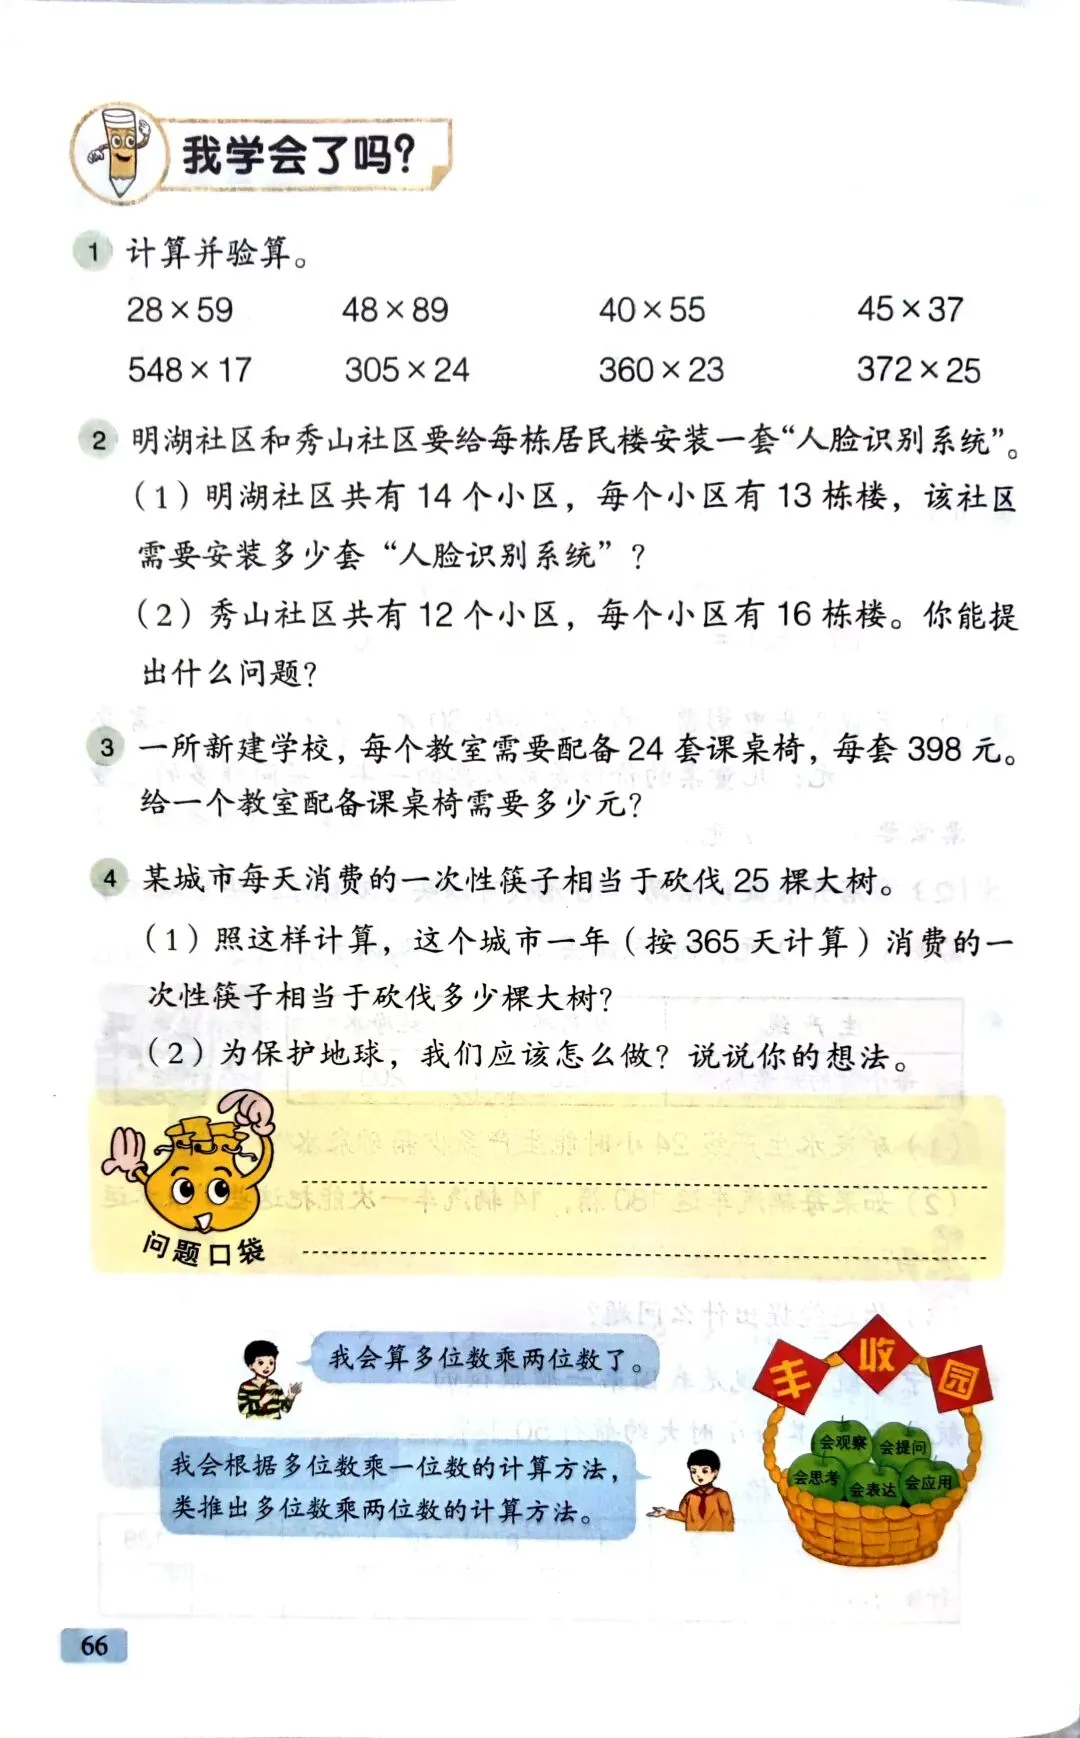 我学会了吗?
1 计算并验算。
28×59 48×89 40×55 45×37
548×17 305×24 360×23 372×25
2 明湖社区和秀山社区要给每栋居民楼安装一套“人脸识别系统”。
（1）明湖社区共有 14 个小区，每个小区有 13 栋楼，该社区
需要安装多少套“人脸识别系统”？
（2）秀山社区共有 12 个小区，每个小区有 16 栋楼。你能提
出什么问题?
3 一所新建学校，每个教室需要配备 24 套课桌椅，每套 398 元。
给一个教室配备课桌椅需要多少元?
4 某城市每天消费的一次性筷子相当于砍伐 25 棵大树。
（1）照这样计算，这个城市一年（按 365 天计算）消费的一
次性筷子相当于砍伐多少棵大树?
（2）为保护地球，我们应该怎么做？说说你的想法。
问题口袋
我会算多位数乘两位数了。
丰收园
我会根据多位数乘一位数的计算方法，
类推出多位数乘两位数的计算方法。
会观察 会提问
会思考 会表达 会应用
66